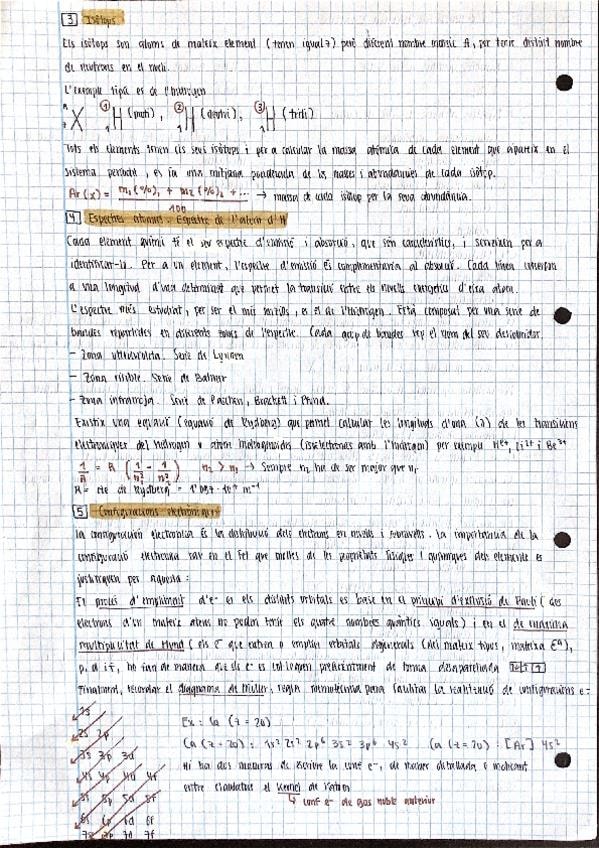 3 Isòtops
Els isòtops son atoms de mateix element (tenen igual z) però diferent nombre màssic A, per tenir distint nombre
de neutrons en el nucli.
L'exemple típic es de l'hidrogen
A X Z 1 H 1 (proti), 2 H 1 (deuteri), 3 H 1 (triti)
Tots els elements tenen els seus isòtops i per a calcular la massa atòmica de cada element que apareix en el
sistema periodic, es fa una mitjana ponderada de les masses i abundancies de cada isòtop.
Ar (x) = m1 (%)1 + m2 (%)2 + ... / 100 → massa de cada isòtop per la seva abundància.
4 Espectres atomics. Espectre de l'atom d'H
Cada element quimic té el seu espectre d'emissió i absorció, que són caracteristics, i serveixen per a
identificar-lo. Per a un element, l'espectre d'emissió és complementaria al absorció. Cada línea correspon
a una longitud d'ona determinat que permet la transició entre els nivells energetics d'eixe atom.
L'espectre més estudiat, per ser el més senzill, es el de l'hidrogen. Està composat per una serie de
bandes repartides en diferents zones de l'espectre. Cada grup de bandes rep el nom del seu descobridor.
- Zona ultravioleta. Serie de Lyman
- Zona visible. Serie de Balmer
- Zona infraroja. Serie de Paschen, Brackett i Pfund.
Existix una equació (equació de Rydberg) que permet calcular les longituds d'ona (λ) de les transicions
electròniques del hidrogen o atoms hidrogenoides (isoelectronics amb l'hidrogen) per exemple He+, Li2+ i Be3+
1/λ = R (1/n1² - 1/n2²) n2 > n1 → Sempre n2 ha de ser major que n1
R = cte de Rydberg = m-1
5 Configuracions electròniques
La configuración electronica és la distribució dels electrons en nivells i subnivells. La importancia de la
configuració electronica rau en el fet que moltes de les propietats físiques i quimiques dels elements es
justifiquen per aquesta:
El procés d'ompliment d'e- en els distints orbitals es base en el principi d'exclusió de Pauli (dos
electrons d'un mateix atom no poden tenir els quatre nombres quantics iguals) i en el de màxima
multiplicitat de Hund (els e- que entren o omplir orbitals degenerats (del mateix tipus, mateixa Eª),
p, d i f, ho fan de manera que els e- es col·loquen preferentment de forma desaparellada
Finalment, recordar el diagrama de Moeller, regla nemotècnica para facilitar la realització de configuracions e-
1s
2s 2p
3s 3p 3d
4s 4p 4d 4f
5s 5p 5d 5f
6s 6p 6d 6f
7s 7p 7d 7f
Ex: Ca (z = 20)
Ca (z = 20): 1s2 2s2 2p6 3s2 3p6 4s2 Ca (z = 20): [Ar] 4s2
Hi ha dos maneres de escribre la conf e-, de maner detallada o
entre claudators el Kernel de
↳ conf e- de gas noble anterior